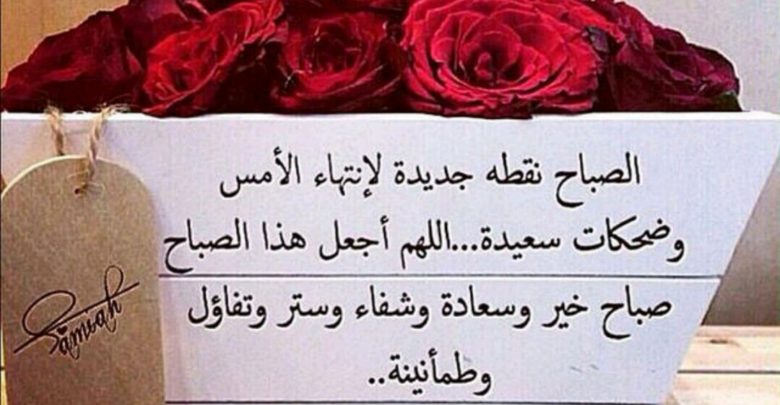 الصباح نقطه جديدة لإنتهاء الأمس
وضحكات سعيدة...اللهم أجعل هذا الصباح
صباح خير وسعادة وشفاء وستر وتفاؤل
وطمأنينة..
Samrah